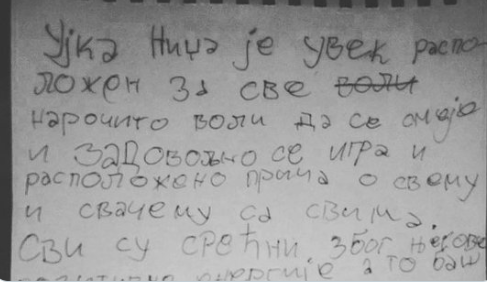 Ујка Ниџа је увек распо-
ложен за све воли
нарочито воли да се смеје
и задовољно се игра и
расположено прича о свему
и свачему са свима.
Сви су срећни због његове
енергије а то баш